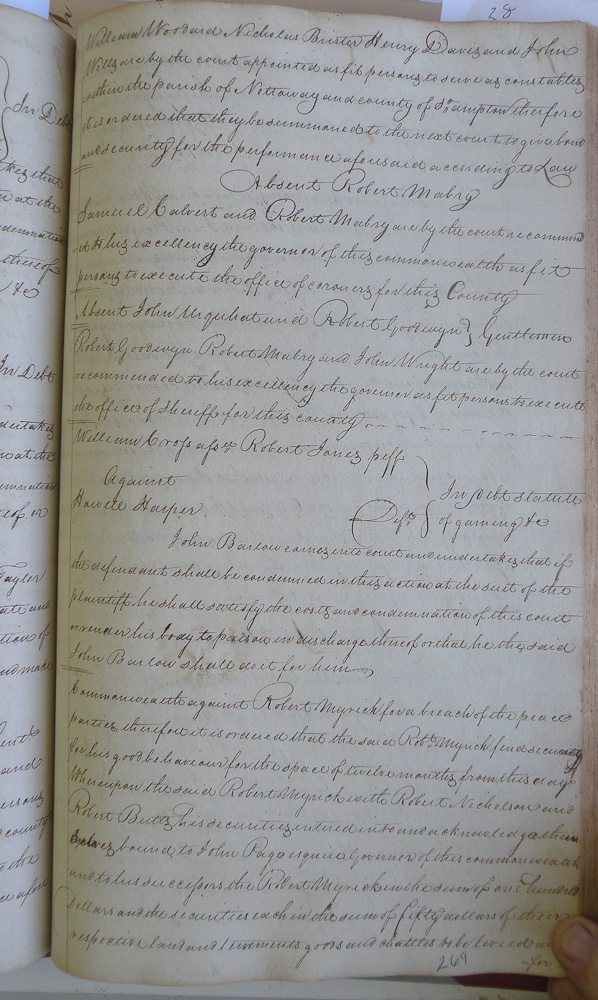 28
William Woodard Nicholas Brister Henry Davis and John
Wills are by the court appointed as fit persons to serve as constables
within the parish of Nottoway and county of So ampton therefore
it is ordered that they be summoned to the next court to give bond
and security for the performance aforesaid according to Law
Absent Robert Mabry
Samuel Calvert and Robert Mabry are by the court recommend
ed to his excellency the governor of this commonwealth as fit
persons to execute the office of coroners for this County
Absent John Urquhat and Robert Goodwyn } Gentlemen
Robert Goodwyn Robert Mabry and John Wright are by the court
recommended to his excellency the governor as fit persons to execute
the office of Sheriff for this county
William Cross asse Robert Jones plff
Against
In Debt statute
Howell Harper
Deft
of gaming &c
John Barlow comes into court and undertakes that if
the defendant shall be condemned in this action at the suit of the
plaintiff he shall satisfy the costs and condemnation of this court
or render his body to prison in discharge thereof or that he the said
John Barlow shall do it for him
Commonwealth against Robert Myrick for a breach of the peace
parties therefore it is ordered that the said Robt Myrick find security
for his good behaviour for the space of twelve months from this day
Whereupon the said Robert Myrick with Robert Nicholson and
Robert Butts his securities entered into and acknowledge them
selves bound to John Page esquire Governor of this commonwealth
and to his successors the Robert Myrick in the sum of one hundred
Dollars and the securities each in the sum of fifty dollars of their
respective land and tenements goods and chattles to be levied and
269
for
In Debt
In Debt
Taylor